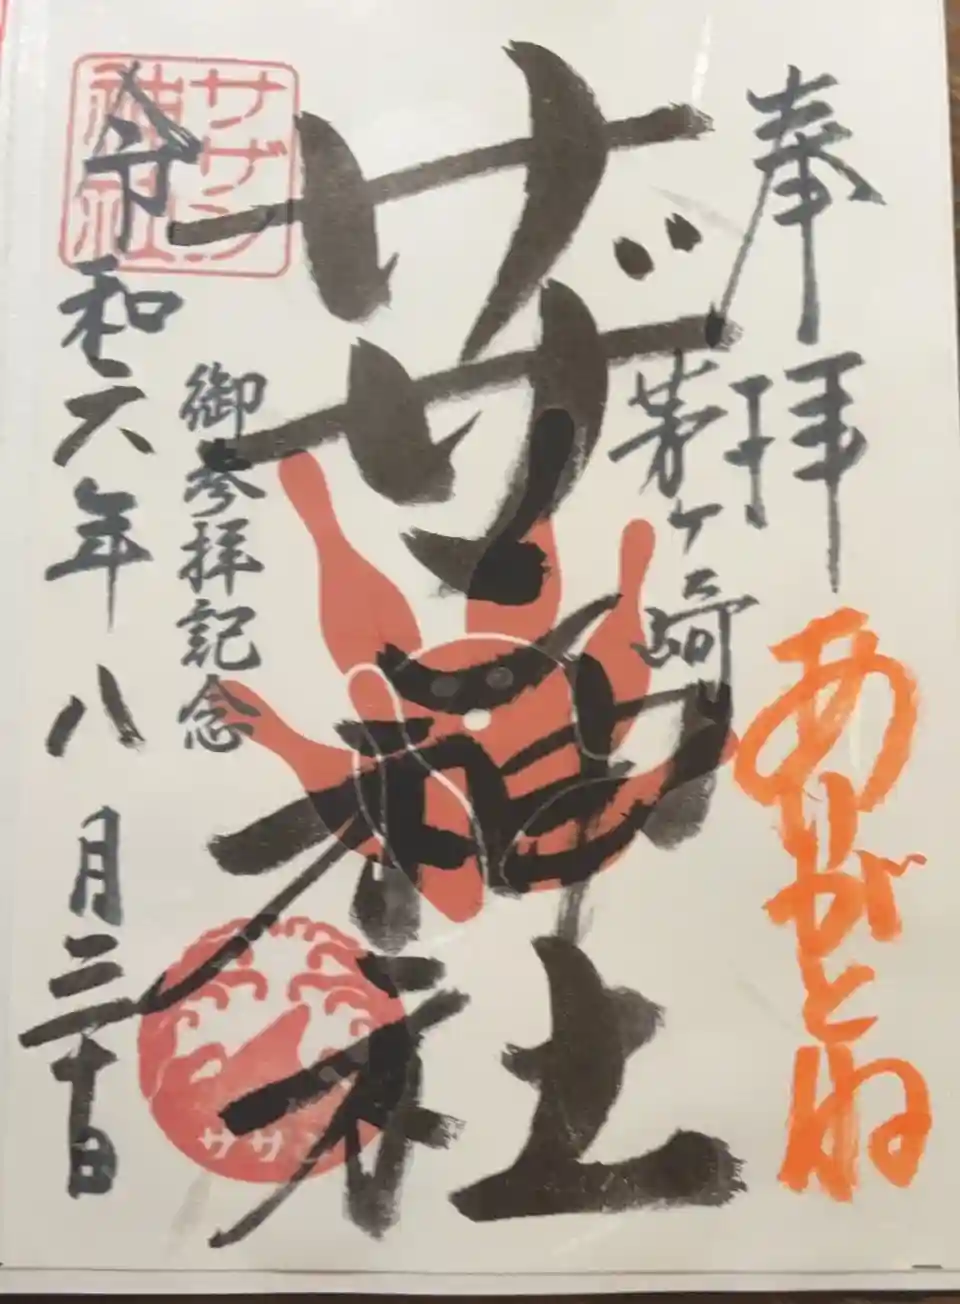 奉拝
ありがとね
茅ヶ崎
サザン神社
御参拝記念
令和六年八月三十日
サザン
神社
サザン